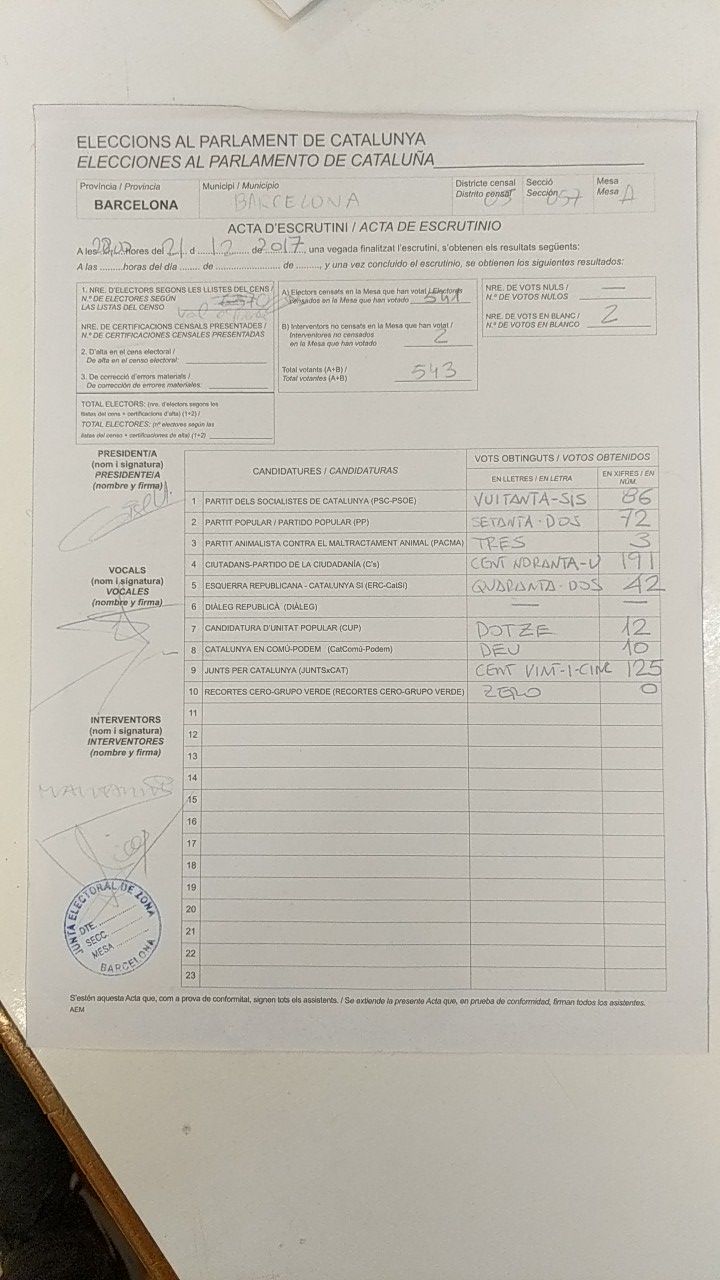 ELECCIONS AL PARLAMENT DE CATALUNYA
ELECCIONES AL PARLAMENTO DE CATALUÑA
Província / Provincia
BARCELONA
Municipi / Municipio
BARCELONA
Districte censal
Distrito censal 05
Secció
Sección 057
Mesa
Mesa A
ACTA D'ESCRUTINI / ACTA DE ESCRUTINIO
A les hores del 21 d 12 de 2017, una vegada finalitzat l'escrutini, s'obtenen els resultats següents:
A las ........horas del día ...... de ...................... de ........, y una vez concluido el escrutinio, se obtienen los siguientes resultados:
1. NRE. D'ELECTORS SEGONS LES LLISTES DEL CENS /
N.º DE ELECTORES SEGÚN
LAS LISTAS DEL CENSO
NRE. DE CERTIFICACIONS CENSALS PRESENTADES /
N.º DE CERTIFICACIONES CENSALES PRESENTADAS
2. D'alta en el cens electoral /
De alta en el censo electoral:
3. De correcció d'errors materials /
De corrección de errores materiales:
TOTAL ELECTORS: (nre. d'electors segons les
llistes del cens + certificacions d'alta) (1+2) /
TOTAL ELECTORES: (nº electores según las
listas del censo + certificaciones de alta) (1+2)
A) Electors censats en la Mesa que han votat / Electores
censados en la Mesa que han votado 541
B) Interventors no censats en la Mesa que han votat /
Interventores no censados
en la Mesa que han votado 2
Total votants (A+B) /
Total votantes (A+B) 543
NRE. DE VOTS NULS /
N.º DE VOTOS NULOS —
NRE. DE VOTS EN BLANC /
N.º DE VOTOS EN BLANCO 2
PRESIDENT/A
(nom i signatura)
PRESIDENTE/A
(nombre y firma)
VOCALS
(nom i signatura)
VOCALES
(nombre y firma)
INTERVENTORS
(nom i signatura)
INTERVENTORES
(nombre y firma)
CANDIDATURES / CANDIDATURAS
VOTS OBTINGUTS / VOTOS OBTENIDOS
EN LLETRES / EN LETRA
EN XIFRES / EN NÚM.
1 PARTIT DELS SOCIALISTES DE CATALUNYA (PSC-PSOE) VUITANTA-SIS 86
2 PARTIT POPULAR / PARTIDO POPULAR (PP) SETANTA-DOS 72
3 PARTIT ANIMALISTA CONTRA EL MALTRACTAMENT ANIMAL (PACMA) TRES 3
4 CIUTADANS-PARTIDO DE LA CIUDADANÍA (C's) CENT NORANTA-U 191
5 ESQUERRA REPUBLICANA - CATALUNYA SÍ (ERC-CatSí) QUARANTA-DOS 42
6 DIÀLEG REPUBLICÀ (DIÀLEG) — —
7 CANDIDATURA D'UNITAT POPULAR (CUP) DOTZE 12
8 CATALUNYA EN COMÚ-PODEM (CatComú-Podem) DEU 10
9 JUNTS PER CATALUNYA (JUNTSxCAT) CENT VINT-I-CINC 125
10 RECORTES CERO-GRUPO VERDE (RECORTES CERO-GRUPO VERDE) ZERO 0
11
12
13
14
15
16
17
18
19
20
21
22
23
JUNTA ELECTORAL DE ZONA
DTE.
SECC.
MESA
BARCELONA
S'estén aquesta Acta que, com a prova de conformitat, signen tots els assistents. / Se extiende la presente Acta que, en prueba de conformidad, firman todos los asistentes.
AEM